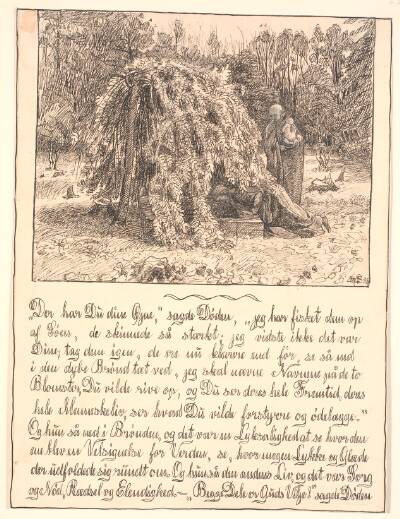 „Der har Du dine Øine,” sagde Döden, „jeg har fisket dem op
af Söen, de skinnede så stærkt; jeg vidste ikke det var
Dine; tag dem igen, de ere nu klarere end för, se så ned
i den dybe Brönd tæt ved, jeg skal nævne Navnene på de to
Blomster, Du vilde rive op, og Du ser deres hele Fremtid, deres
hele Menneskeliv, ser hvad Du vilde forstyrre og ödelægge.”
Og hun så ned i Brönden; og det var en Lyksalighed at se hvordan
en blev en Velsignelse for Verden, se, hvor megen Lykke og Glæde
der udfoldede sig rundt om. Og hun så den andens Liv, og det var Sorg
og Nöd, Rædsel og Elendighed. — „Begge Dele er Guds Villie!” sagde Döden